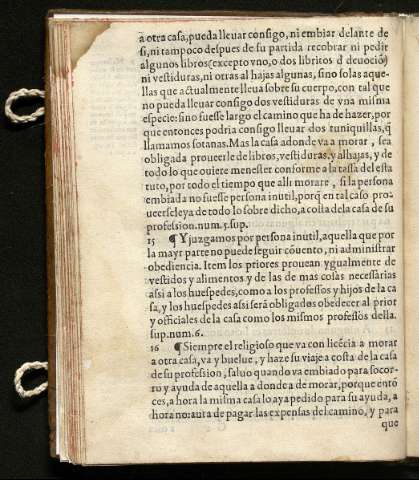 a otra casa, pueda lleuar consigo, ni embiar delante de
si, ni tampoco despues de su partida recobrar ni pedir
algunos libros (excepto vno, o dos libritos d̃ deuociõ)
ni vestiduras, ni otras alhajas algunas, sino solas aque-
llas que actualmente lleua sobre su cuerpo, con tal que
no pueda lleuar consigo dos vestiduras de vna misma
especie: sino fuesse largo el camino que ha de hazer, por
que entonces podria consigo lleuar dos tuniquillas, q̃
llamamos sotanas. Mas la casa adonde va a morar, sea
obligada proueerle de libros, vestiduras, y alhajas, y de
todo lo que ouiere menester conforme a la tassa del esta
tuto, por todo el tiempo que alli morare, si la persona
embiada no fuesse persona inutil, porq̃ en tal caso pro-
ueerseleya de todo lo sobre dicho, a costa de la casa de su
profession. num. 5. sup.
15 ¶ Y juzgamos por persona inutil, aquella que por
la mayr parte no puede seguir cõuento, ni administrar
obediencia. Item los priores prouean ygualmente de
vestidos y alimentos y de las de mas cosas necessarias
assi a los huespedes, como a los professos y hijos de la ca
sa, y los huespedes assi será obligados obedecer al prior
y officiales de la casa como los mismos professos della.
sup. num. 6.
16 ¶ Siempre el religioso que va con licẽcia a morar
a otra casa, va y buelue, y haze su viaje a costa de la casa
de su profession, saluo quando va embiado para socor-
ro y ayuda de aquella a donde a de morar, porque entõ
ces, a hora la misma casa lo aya pedido para su ayuda, a
hora no: aura de pagar las expensas del camino, y para
que